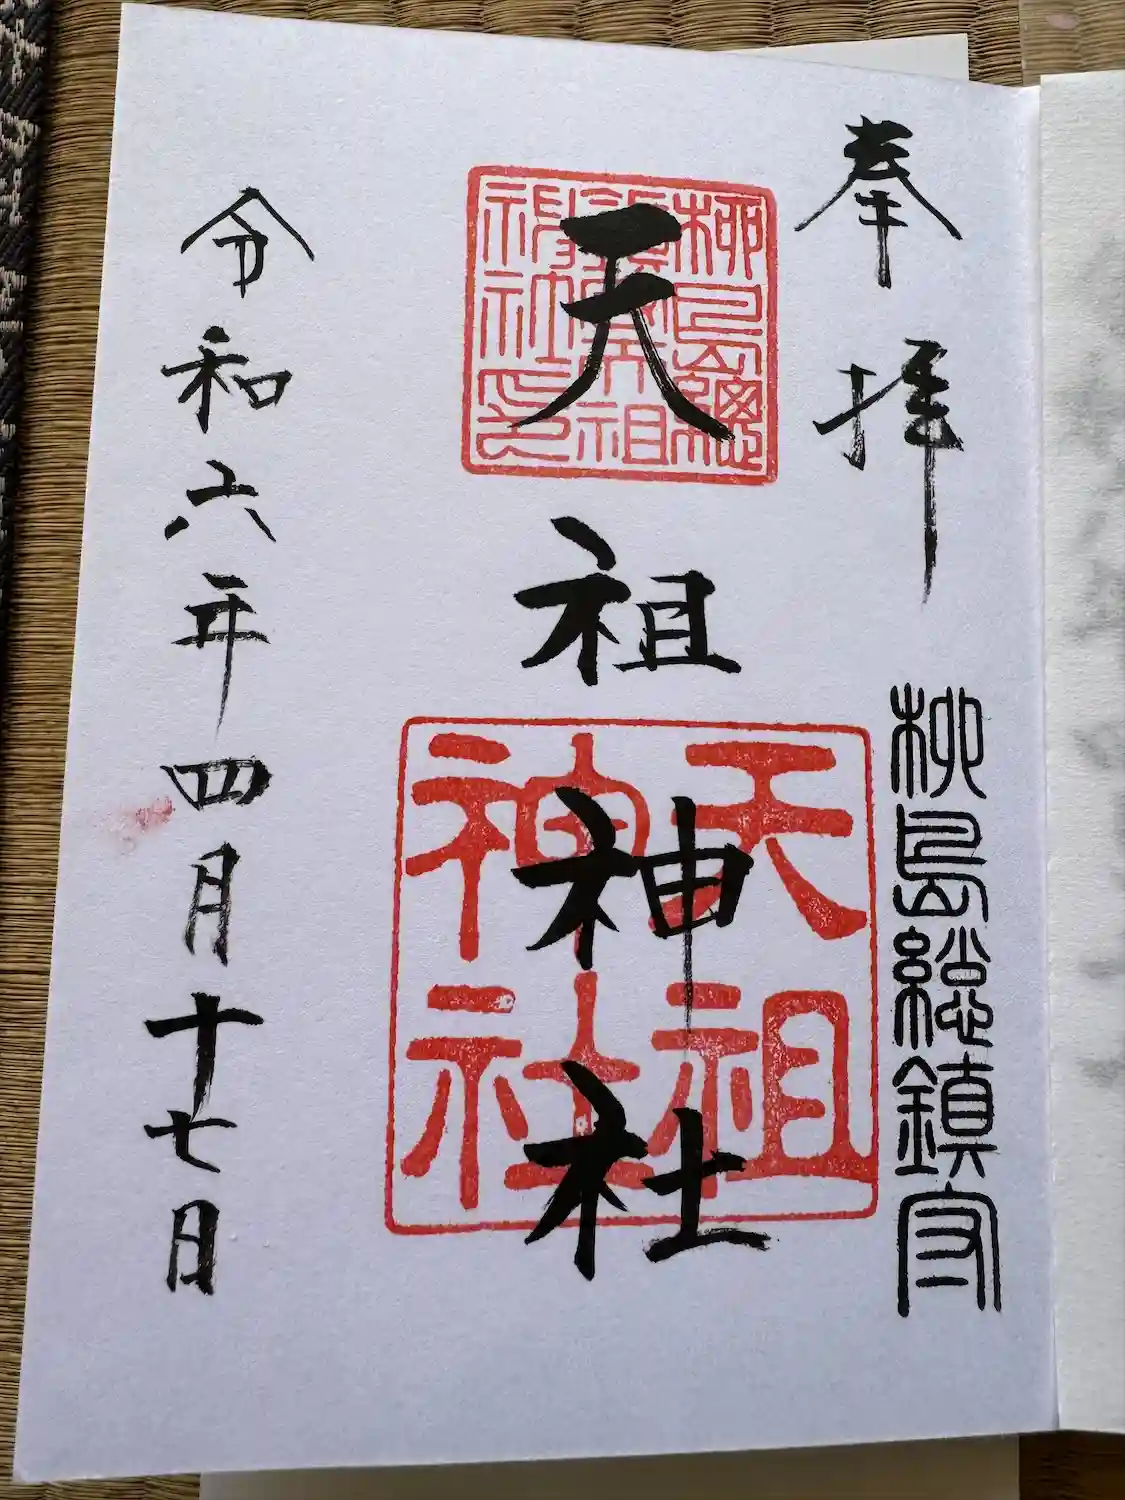 奉拝
柳島総鎮守
天祖神社
柳島総鎮守天祖神社印
天祖神社
令和六年四月十七日